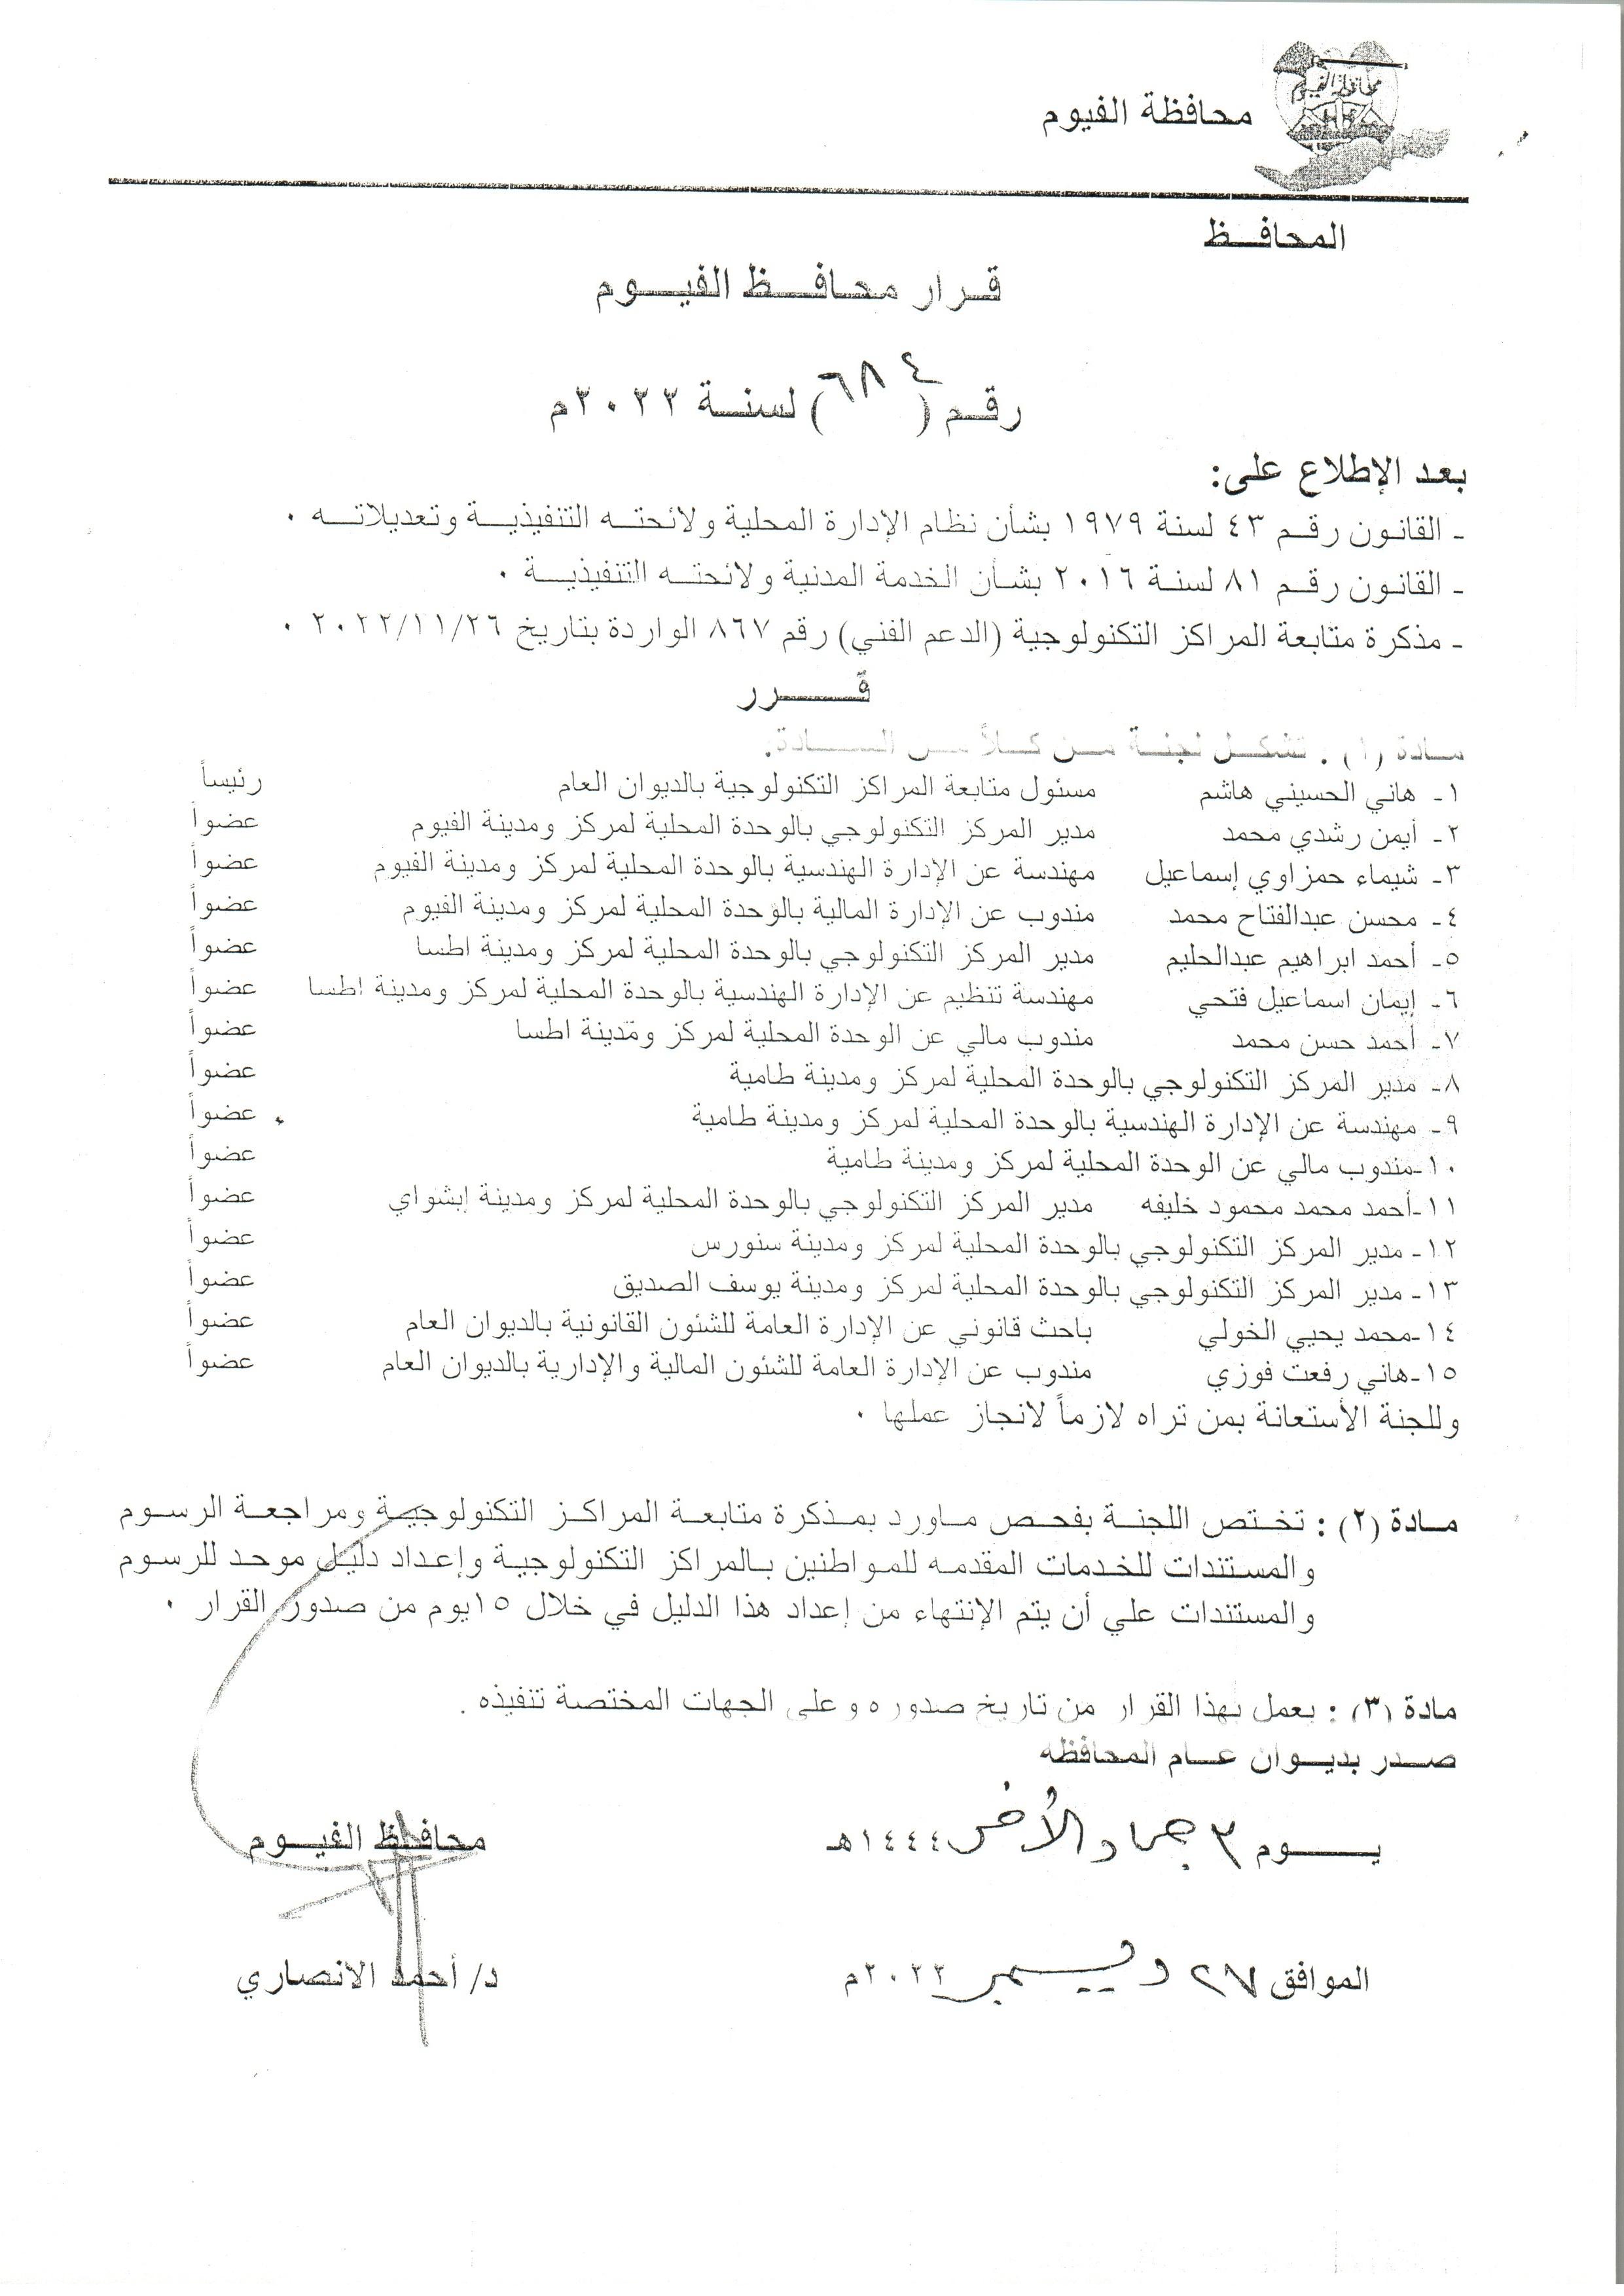 محافظة الفيوم
محافظة الفيوم
المحافـــظ
قــرار محافـــظ الفيــوم
رقـم (٦٨٤) لسنـة ٢٠٢٢م
بعد الإطلاع على:
- القانون رقـم ٤٣ لسنة ١٩٧٩ بشأن نظام الإدارة المحلية ولائحتـه التنفيذيـــة وتعديلاتـــه .
- القانون رقـم ٨١ لسنـة ٢٠١٦ بشـأن الخدمة المدنية ولائحتــه التنفيذيـــة .
- مذكرة متابعة المراكز التكنولوجية (الدعم الفني) رقم ٨٦٧ الواردة بتاريخ ٢٠٢٢/١١/٢٦ .
قــــرر
مـادة (١) : تشكـل لجنـة مـن كـلاً مـن الســـادة:
١- هاني الحسيني هاشم مسئول متابعة المراكز التكنولوجية بالديوان العام رئيساً
٢- أيمن رشدي محمد مدير المركز التكنولوجي بالوحدة المحلية لمركز ومدينة الفيوم عضواً
٣- شيماء حمزاوي إسماعيل مهندسة عن الإدارة الهندسية بالوحدة المحلية لمركز ومدينة الفيوم عضواً
٤- محسن عبدالفتاح محمد مندوب عن الإدارة المالية بالوحدة المحلية لمركز ومدينة الفيوم عضواً
٥- أحمد ابراهيم عبدالحليم مدير المركز التكنولوجي بالوحدة المحلية لمركز ومدينة اطسا عضواً
٦- إيمان اسماعيل فتحي مهندسة تنظيم عن الإدارة الهندسية بالوحدة المحلية لمركز ومدينة اطسا عضواً
٧- أحمد حسن محمد مندوب مالي عن الوحدة المحلية لمركز ومدينة اطسا عضواً
٨- مدير المركز التكنولوجي بالوحدة المحلية لمركز ومدينة طامية عضواً
٩- مهندسة عن الإدارة الهندسية بالوحدة المحلية لمركز ومدينة طامية عضواً
١٠-مندوب مالي عن الوحدة المحلية لمركز ومدينة طامية عضواً
١١-أحمد محمد محمود خليفه مدير المركز التكنولوجي بالوحدة المحلية لمركز ومدينة إبشواي عضواً
١٢- مدير المركز التكنولوجي بالوحدة المحلية لمركز ومدينة سنورس عضواً
١٣- مدير المركز التكنولوجي بالوحدة المحلية لمركز ومدينة يوسف الصديق عضواً
١٤-محمد يحيي الخولي باحث قانوني عن الإدارة العامة للشئون القانونية بالديوان العام عضواً
١٥-هاني رفعت فوزي مندوب عن الإدارة العامة للشئون المالية والإدارية بالديوان العام عضواً
وللجنة الأستعانة بمن تراه لازماً لانجاز عملها .
مـادة (٢) : تختص اللجنـة بفحـص مـاورد بمـذكرة متابعـة المراكـز التكنولوجيـة ومراجعـة الرسـوم
والمستندات للخدمات المقدمه للمواطنين بالمراكز التكنولوجيـة وإعـداد دليـل موحـد للرسوم
والمستندات علي أن يتم الإنتهاء من إعداد هذا الدليل في خلال ١٥يوم من صدور القرار .
مادة (٣) : يعمل بهذا القرار من تاريخ صدوره وعلى الجهات المختصة تنفيذه .
صـدر بديـوان عـام المحافظه
يــــوم ٣ جماد الأخر ١٤٤٤هـ
محافــظ الفيــوم
الموافق ٢٧ ديسمبر ٢٠٢٢م
د/ أحمد الانصاري